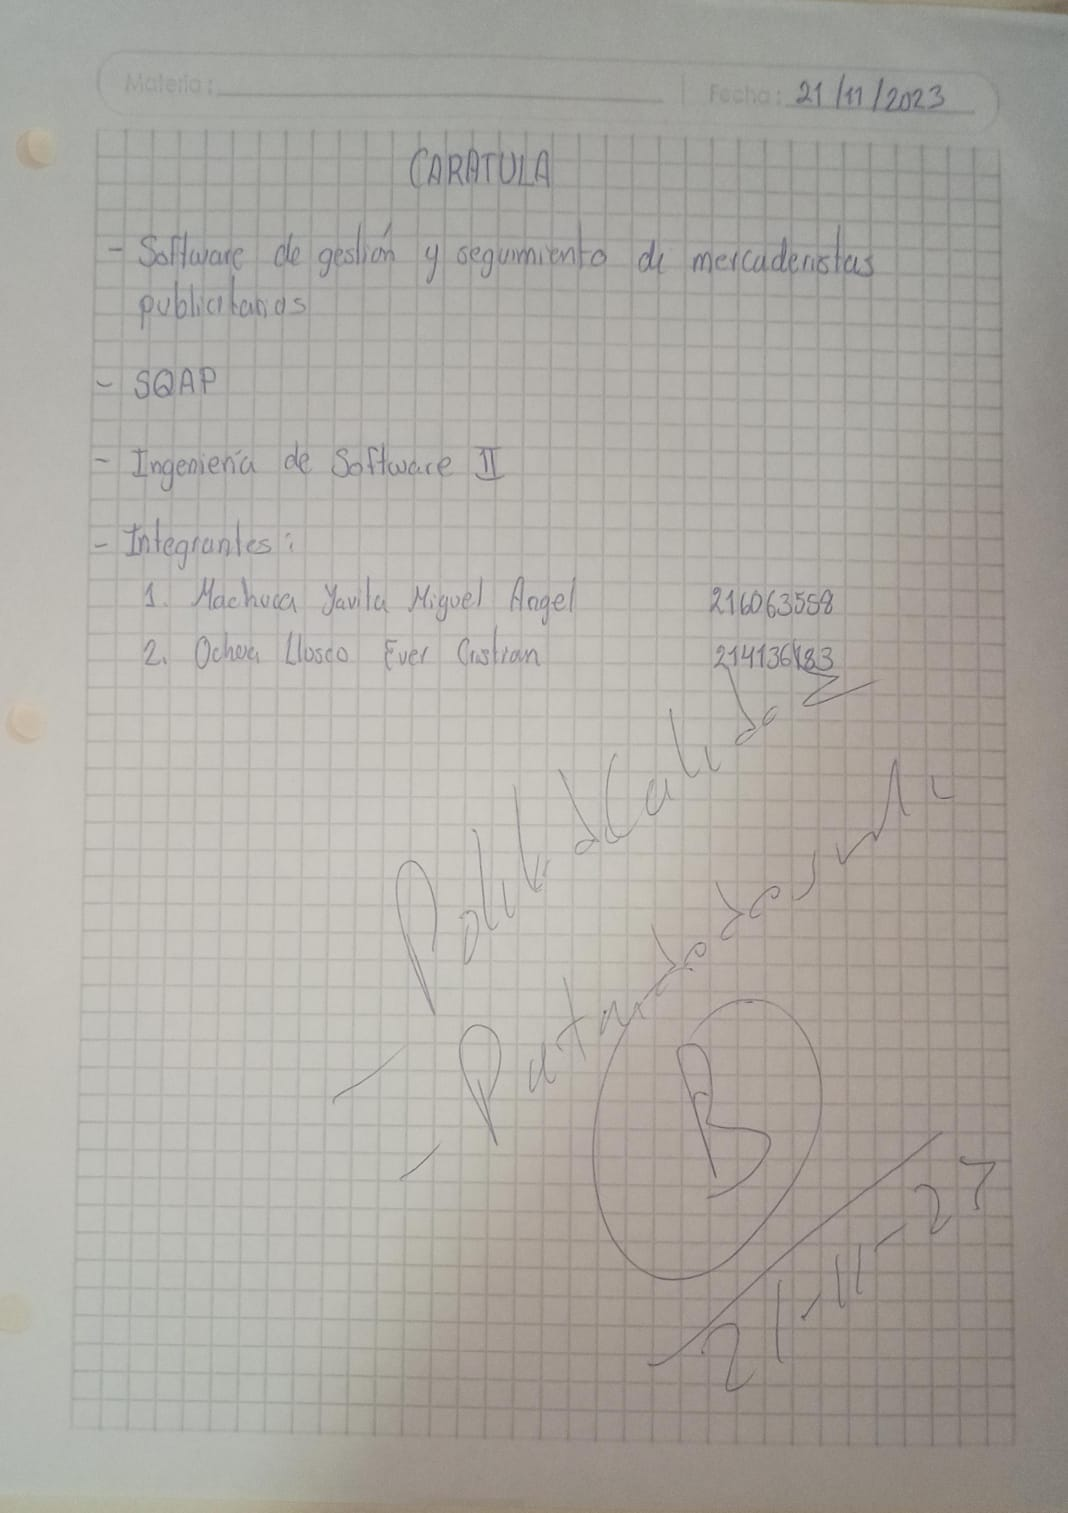 Materia:
Fecha: 21/11/2023
CARATULA
- Software de gestión y seguimiento de mercaderistas
publicitarios
- SQAP
- Ingeniería de Software II
- Integrantes:
1. Machuca Yavita Miguel Angel 216063558
2. Ochoa Llosco Ever Cristian 214136183
B
21-11-23